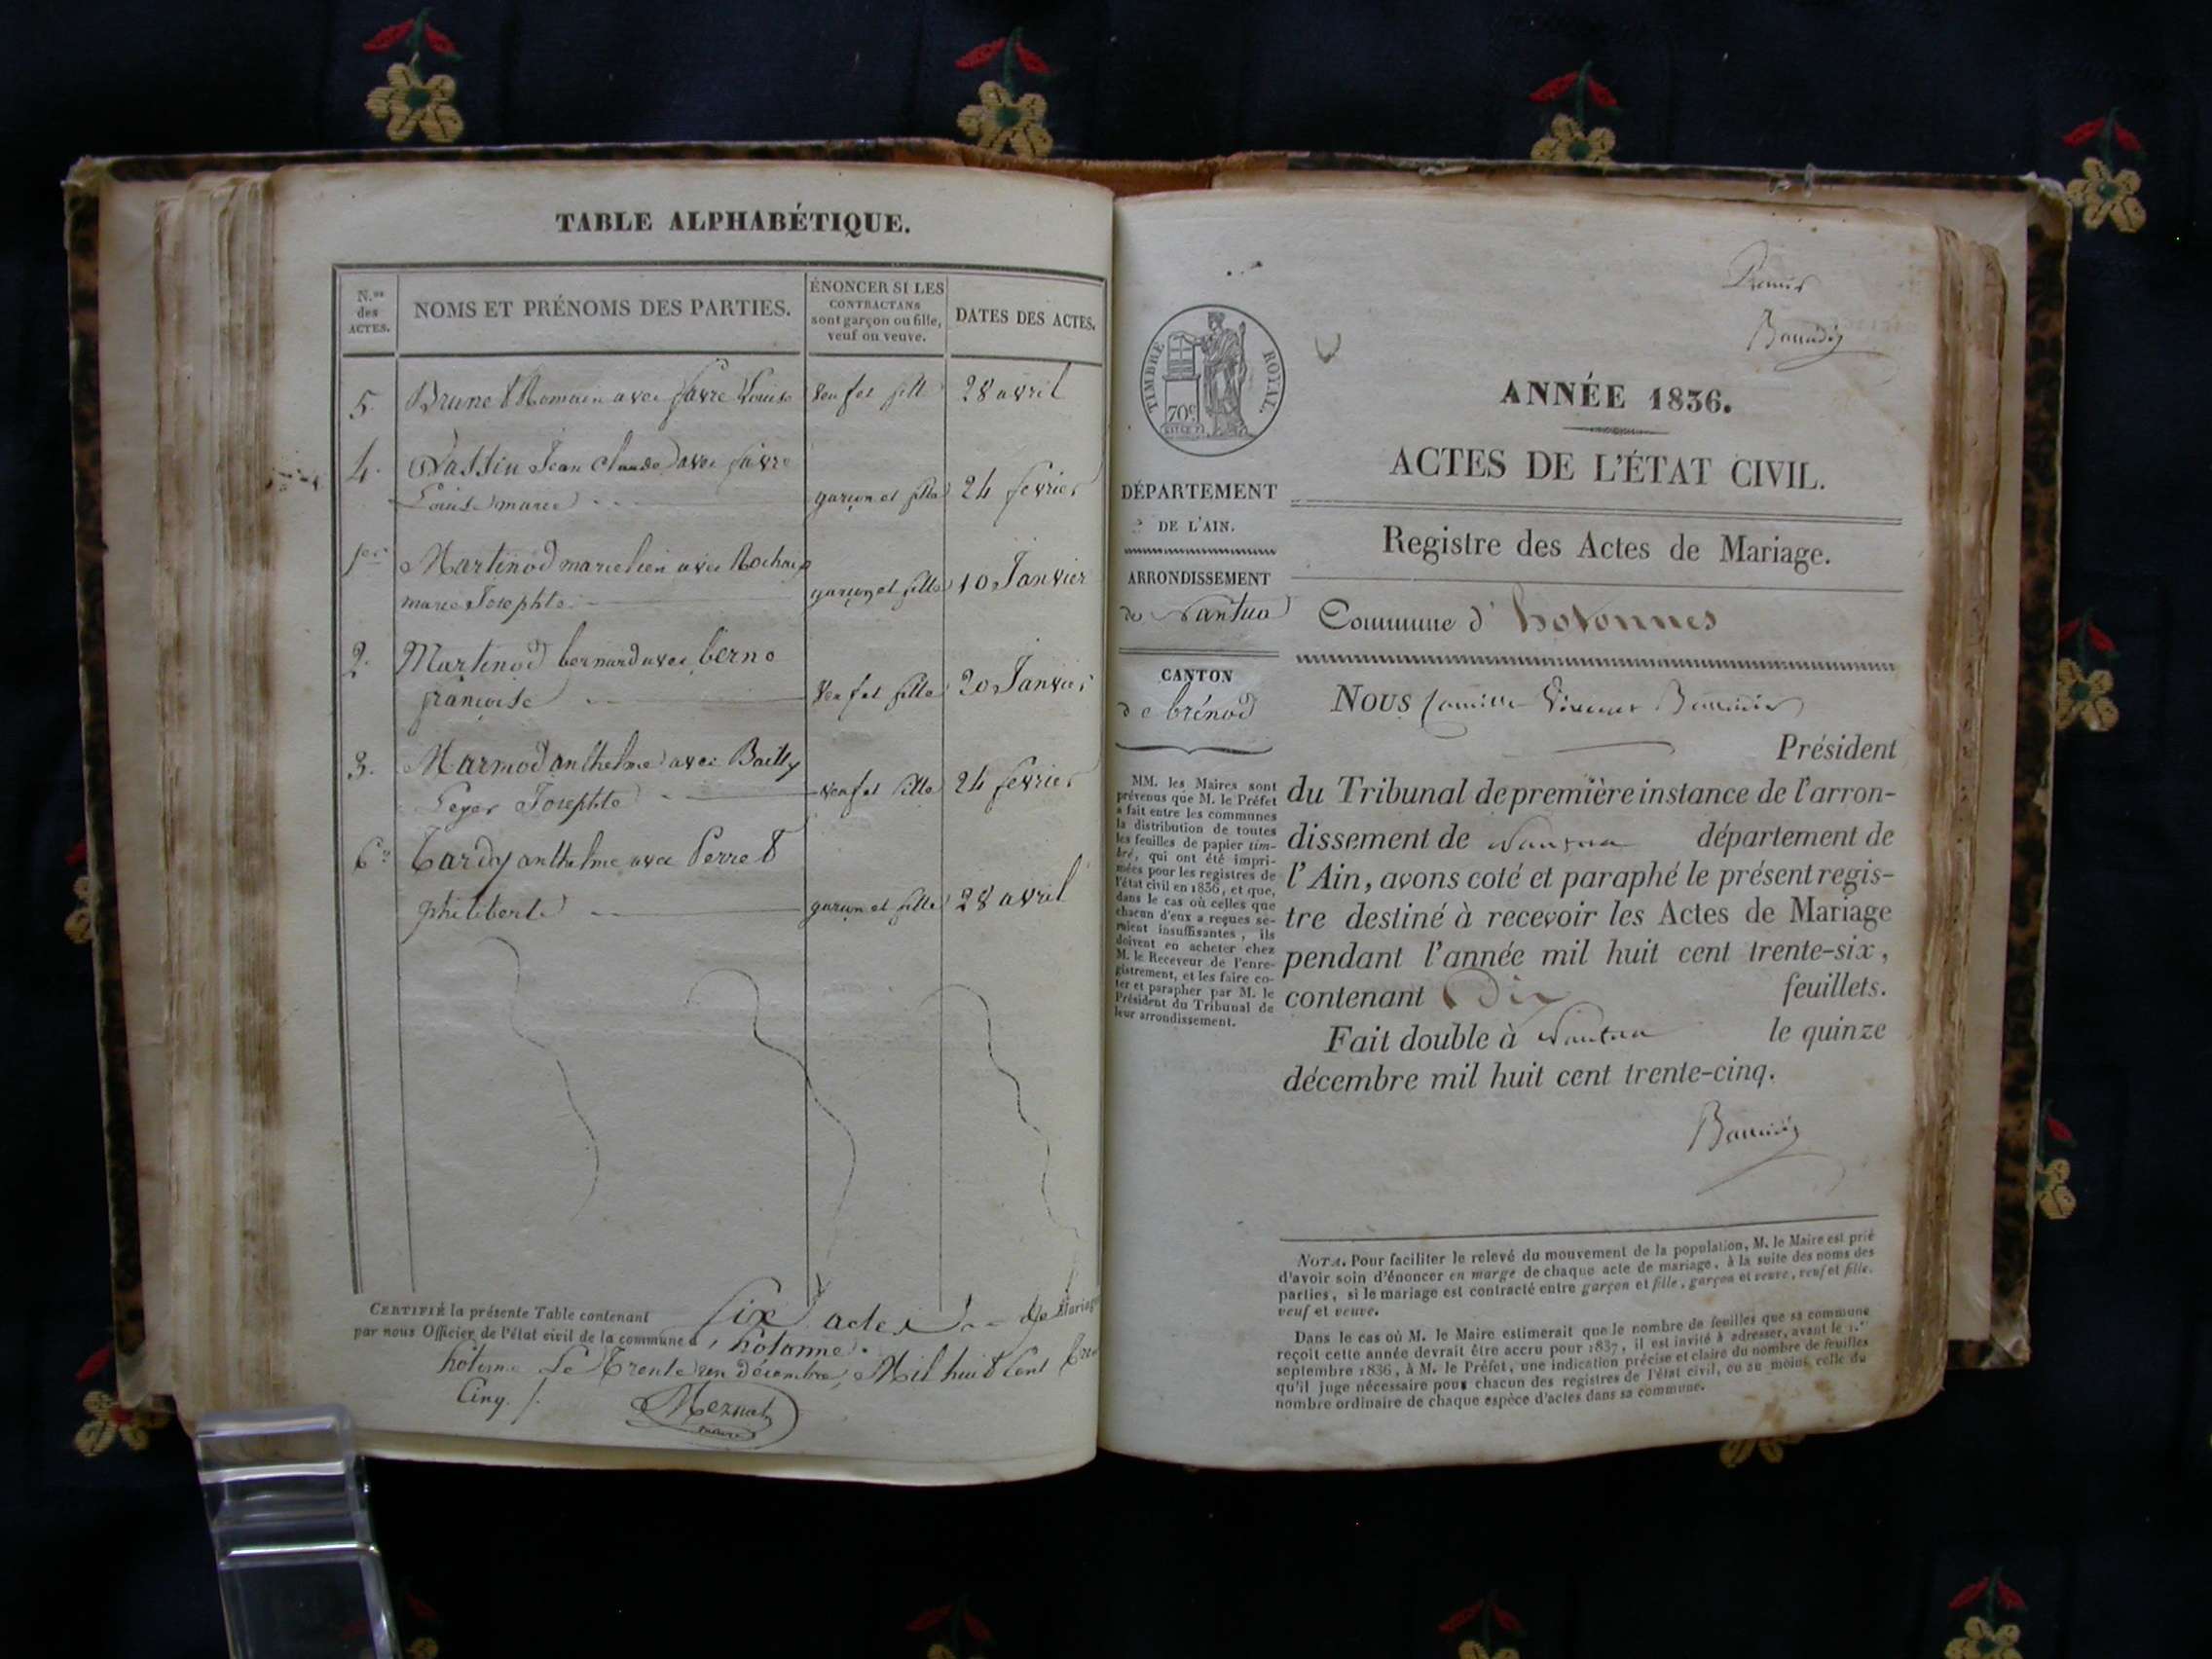 TABLE ALPHABÉTIQUE.
N.os des ACTES.
NOMS ET PRÉNOMS DES PARTIES.
ÉNONCER SI LES
CONTRACTANS
sont garçon ou fille,
veuf ou veuve.
DATES DES ACTES.
5. Brunet Romain avec favre Louise veuf et fille 28 avril
4. Passin Jean Claude avec favre
Louise marie garçon et fille 24 fevrier
1er Martinod marcelien avec Rochaix
marie Josephte garçon et fille 10 Janvier
2. Martinod bernard avec berno
françoise veuf et fille 20 Janvier
3. Marmod anthelme avec Bailly
Leger Josephte veuf et fille 24 fevrier
6e Tardy anthelme avec Perret
philiberte garçon et fille 28 avril
CERTIFIÉ la présente Table contenant Six actes de Mariage
par nous Officier de l'état civil de la commune d'hotonne.
hotonne Le Trente un décembre Mil huit Cent Tren
Cinq.
Meznat
maire
Premier
Baudin
TIMBRE ROYAL.
70c
ANNÉE 1836.
ACTES DE L'ÉTAT CIVIL.
Registre des Actes de Mariage.
Commune d'hotonnes
DÉPARTEMENT
DE L'AIN.
ARRONDISSEMENT
de Nantua
CANTON
de brénod
MM. les Maires sont
prévenus que M. le Préfet
a fait entre les communes
la distribution de toutes
les feuilles de papier tim-
bré, qui ont été impri-
mées pour les registres de
l'état civil en 1836, et que,
dans le cas où celles que
chacun d'eux a reçues se-
raient insuffisantes, ils
doivent en acheter chez
M. le Receveur de l'enre-
gistrement, et les faire co-
ter et parapher par M. le
Président du Tribunal de
leur arrondissement.
NOUS Camille Vincent
Président
du Tribunal de première instance de l'arron-
dissement de Nantua département de
l'Ain, avons coté et paraphé le présent regis-
tre destiné à recevoir les Actes de Mariage
pendant l'année mil huit cent trente-six,
contenant Dix feuillets.
Fait double à Nantua le quinze
décembre mil huit cent trente-cinq.
NOTA. Pour faciliter le relevé du mouvement de la population, M. le Maire est prié
d'avoir soin d'énoncer en marge de chaque acte de mariage, à la suite des noms des
parties, si le mariage est contracté entre garçon et fille, garçon et veuve, veuf et fille.
veuf et veuve.
Dans le cas où M. le Maire estimerait que le nombre de feuilles que sa commune
reçoit cette année devrait être accru pour 1837, il est invité à adresser, avant le 1.er
septembre 1836, à M. le Préfet, une indication précise et claire du nombre de feuilles
qu'il juge nécessaire pour chacun des registres de l'état civil, ou au moins celle du
nombre ordinaire de chaque espèce d'actes dans sa commune.